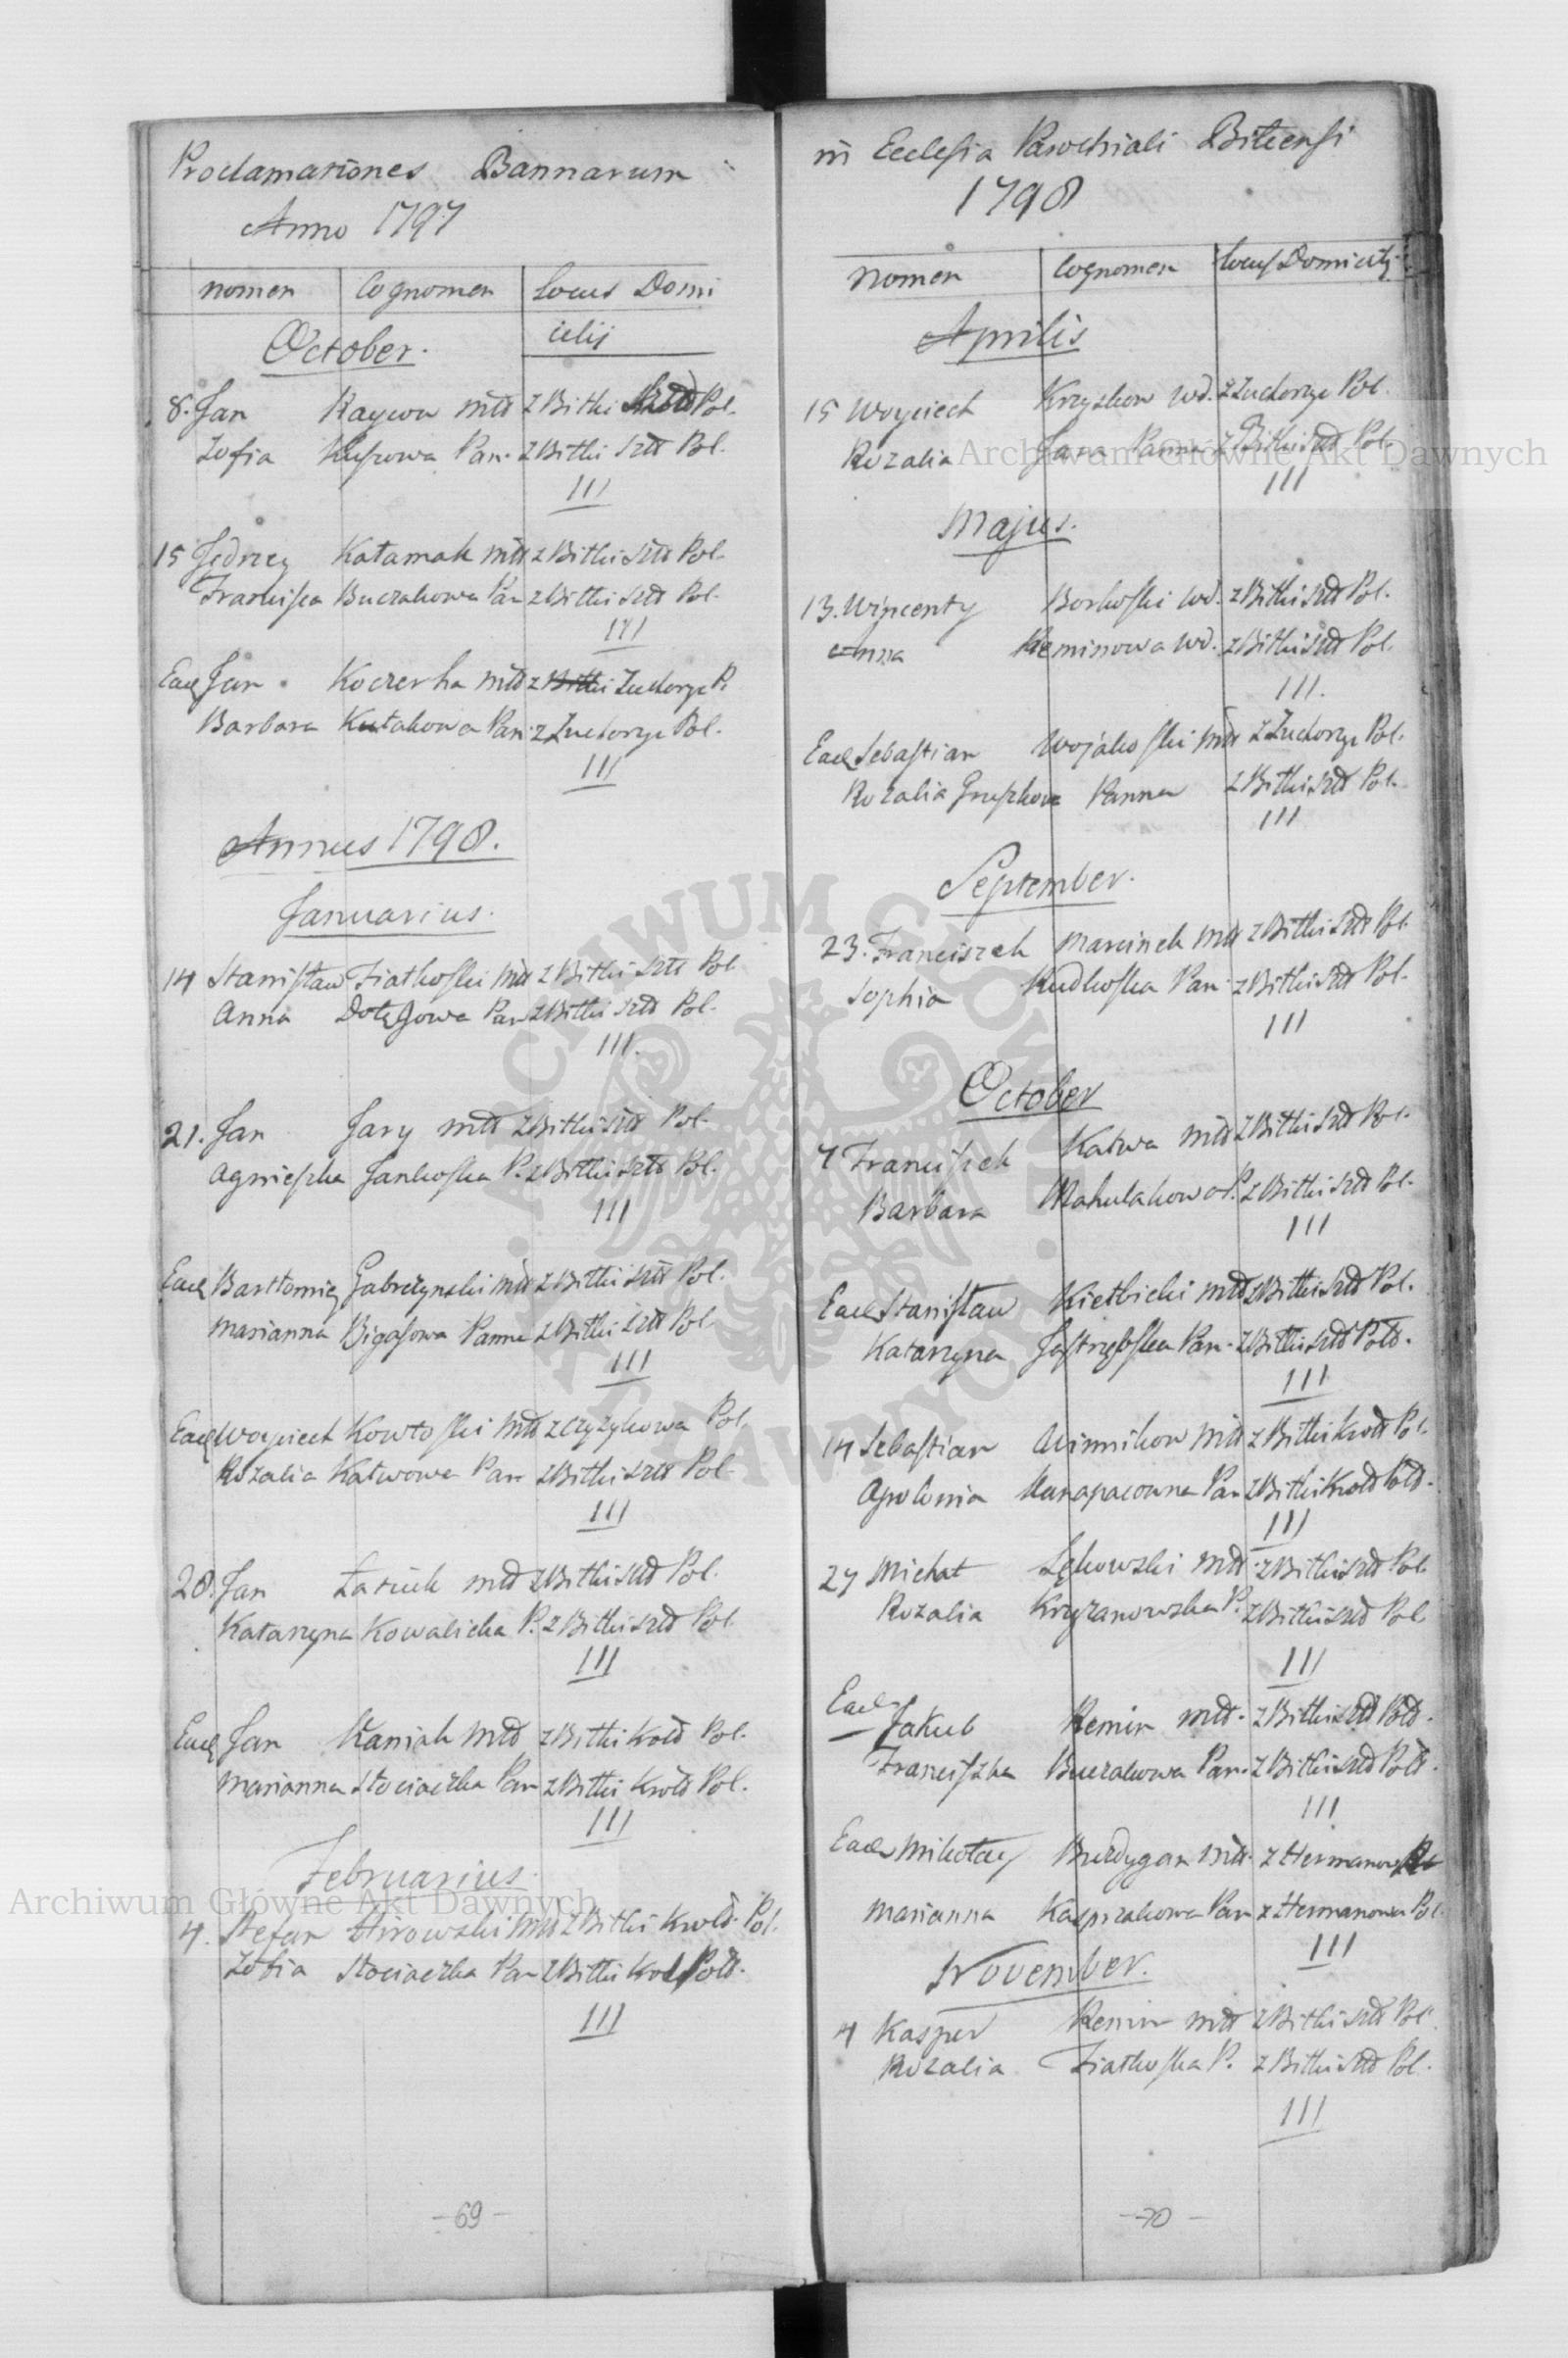 Proclamationes Bannarum
Anno 1797
nomen Cognomen Locus Domi
cilij
October.
8. Jan Raywa młd z Bitki Pol.
Zofia Kusowa Pan. z Bitki szld Pol.
III
15 Jędrzey Katamak młd z Bitki szld Pol.
Franciska Buczakowa Pan z Bitki szld Pol.
III
Ead Jan Koczerka młd z Zuchorzyc P.
Barbara Kutakowa Pan. z Zuchorzyc Pol.
III
Annus 1798.
Januarius.
14 Stanisław Fiatkoski młd z Bitki szld Pol
Anna Dołęgowa Pan z Bitki szld Pol.
III.
21. Jan Jary młd z Bitki szld Pol.
Agnieszka Jankoska P. z Bitki szld Pol.
III
Ead Bartłomiej Gabrezynski młd z Bitki szld Pol.
Marianna Bigasowa Panna z Bitki szld Pol.
III
Ead Woyciech Kowtoski młd z Czyżykowa Pol.
Rozalia Katwowa Pan z Bitki szld Pol.
III
28. Jan Łasiuk młd z Bitki szld Pol.
Katarzyna Kowalicka P. z Bitki szld Pol.
III
Ead Jan Kaniak młd z Bitki Kold Pol.
Marianna Stociaczka Pan z Bitki Krold Pol.
III
Februarius.
4. Stefan młd z Bitki Krold. Pol.
Zofia Stociaczka Pan z Bitki Pold.
III
- 69 -
in Ecclesia Parochiali Bitcensi
1798
Nomen Cognomen Locus Domicily
Aprilis
15 Woyciech Krzyskow wd. z Zuchorzyc Pol.
Rozalia Jara Panna z Bitki szld Pol.
III
Majus.
13. Wincenty Borkoski wd. z Bitki szld Pol.
Anna Reminowa wd. z Bitki szld Pol.
III.
Ead Sebastian Wojakoski młd z Zuchorzyc Pol.
Rozalia Gruszkowa Panna z Bitki szld Pol.
III
September.
23. Franciszek Marcinek młd z Bitki szld Pol.
Sophia Kudkoska Pan. z Bitki szld Pol.
III
October
7 Franciszek Katwa młd z Bitki szld Pol.
Barbara Makulakowa P. z Bitki szld Pol.
III
Ead Stanisław Kietbicki młd z Bitki szld Pol.
Katarzyna Jastrzębska Pan. z Bitki szld Pold.
III
14 Sebastian Winnikow młd z Bitki Krold Pol.
Apolonia Pan z Bitki Krold Pold.
III
27 Michał Lękowski młd. z Bitki szld Pol.
Rozalia Krzyżanowska P. z Bitki szld Pol
III
Ead
Jakub Remin młd. z Bitki szld Pold.
Franciszka Buczakowa Pan. z Bitki szld Pold.
III
Ead Mikołay Burdygan młd. z Hermanow
Marianna Kasprzakowa Pan z Hermanowa Pol.
III
November.
4 Kasper Remin młd z Bitki szld Pol.
Rozalia Fiatkoska P. z Bitki szld Pol.
III
- 70 -
Archiwum Główne Akt Dawnych
Archiwum Główne Akt Dawnych
ARCHIWUM GŁÓWNE AKT DAWNYCH